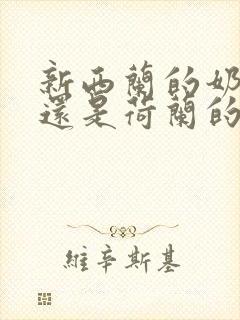 新西蘭的奶
還是荷蘭的
維辛斯基